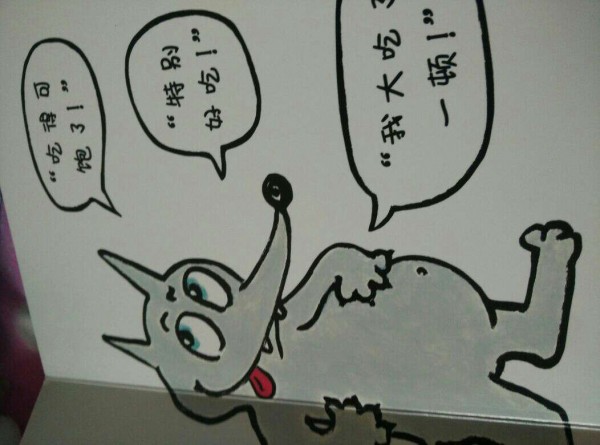 “吃得可
饱了！”
“特别
好吃！”
“我大吃了
一顿！”